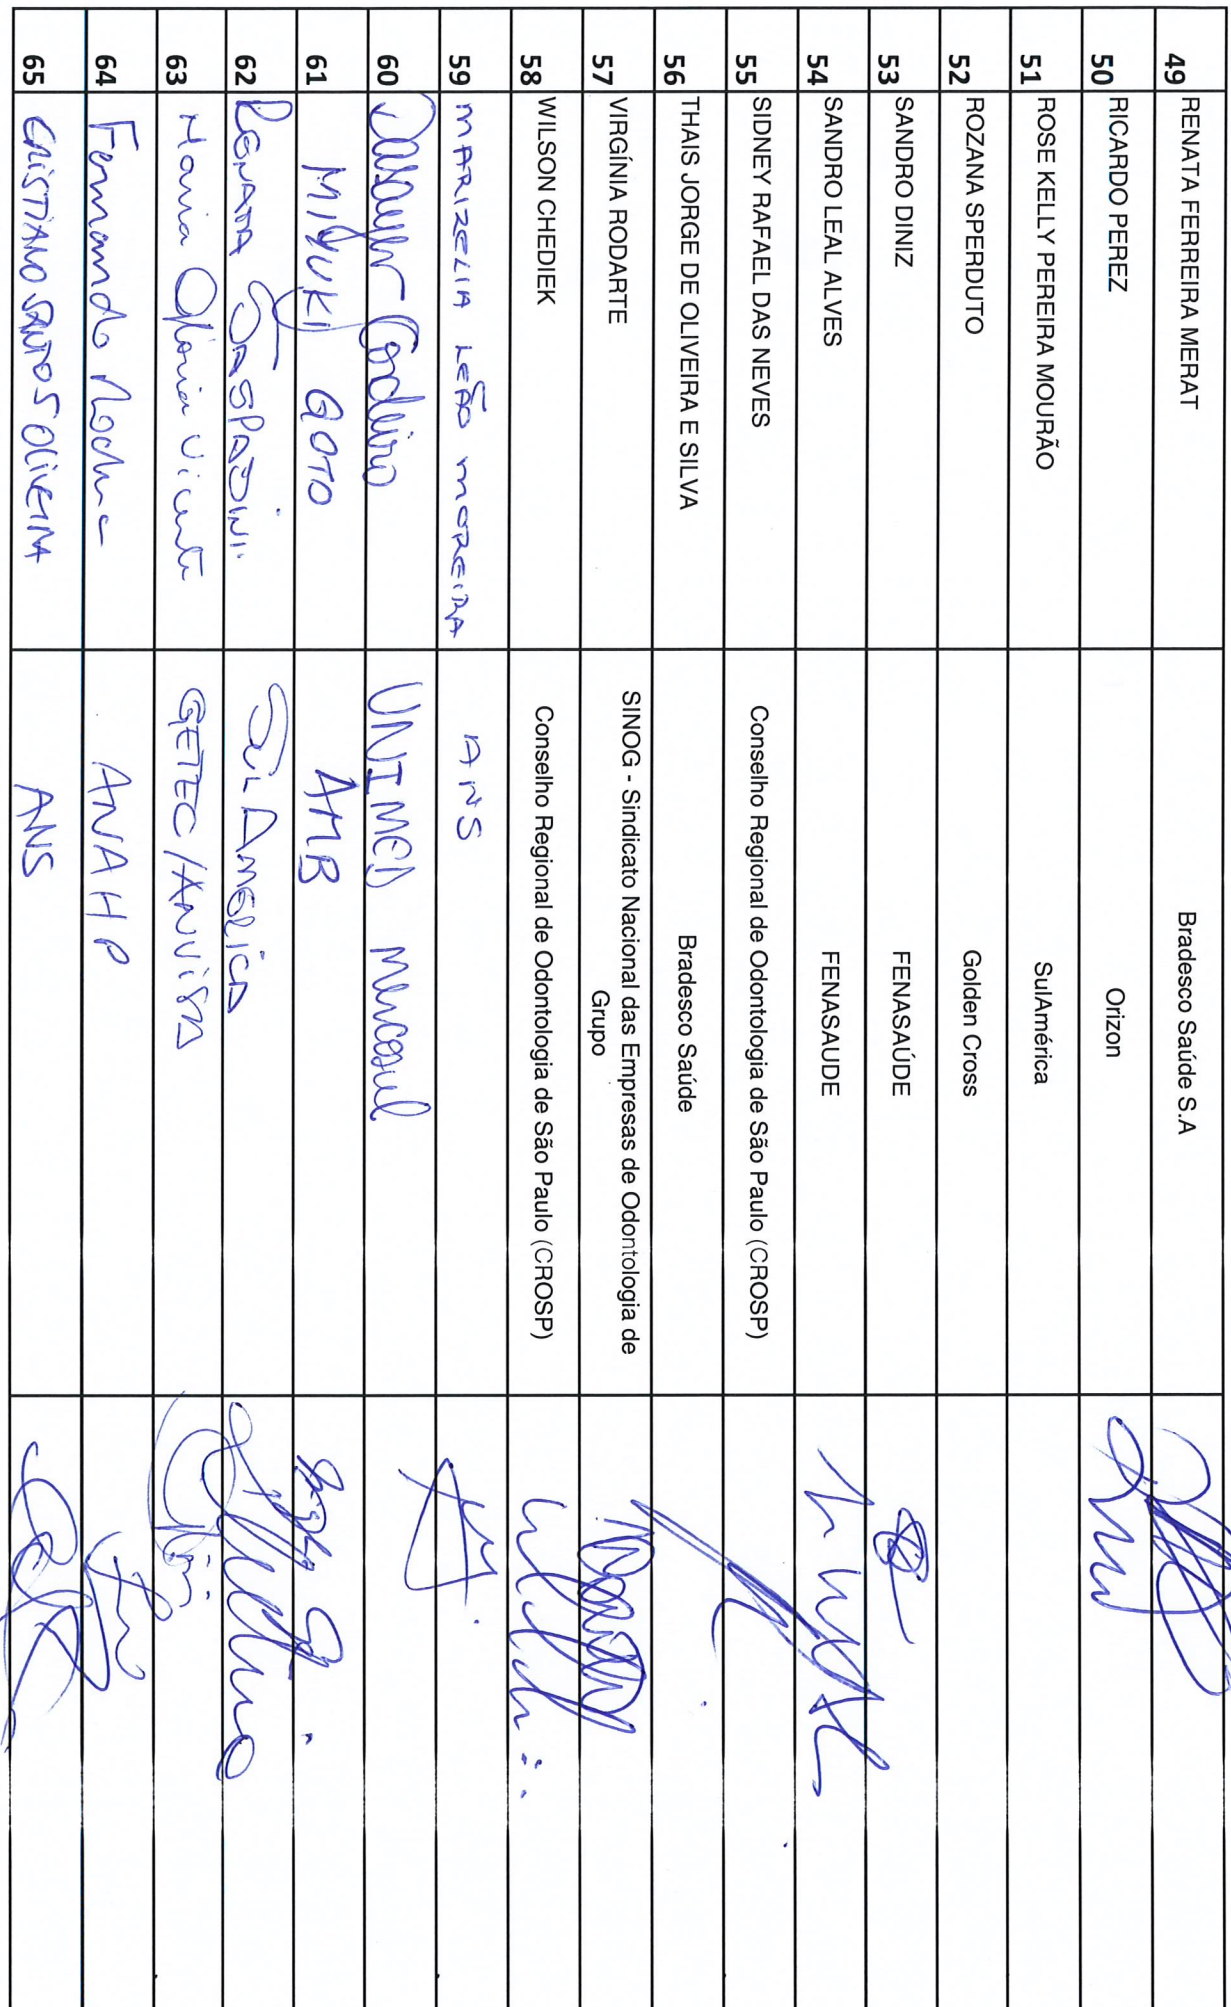 49 RENATA FERREIRA MERAT Bradesco Saúde S.A
50 RICARDO PEREZ Orizon
51 ROSE KELLY PEREIRA MOURÃO SulAmérica
52 ROZANA SPERDUTO Golden Cross
53 SANDRO DINIZ FENASAÚDE
54 SANDRO LEAL ALVES FENASAUDE
55 SIDNEY RAFAEL DAS NEVES Conselho Regional de Odontologia de São Paulo (CROSP)
56 THAIS JORGE DE OLIVEIRA E SILVA Bradesco Saúde
57 VIRGÍNIA RODARTE SINOG - Sindicato Nacional das Empresas de Odontologia de
Grupo
58 WILSON CHEDIEK Conselho Regional de Odontologia de São Paulo (CROSP)
59 MARIZELIA LEÃO MOREIRA ANS
60 Cordeiro UNIMED Mercosul
61 MIYUKI GOTO AMB
62 RENATA GASPARINI SUL AMERICA
63 Maria Glória Vicente GETEC/ANVISA
64 Fernando Rocha ANAHP
65 CRISTIANO SANTOS OLIVEIRA ANS